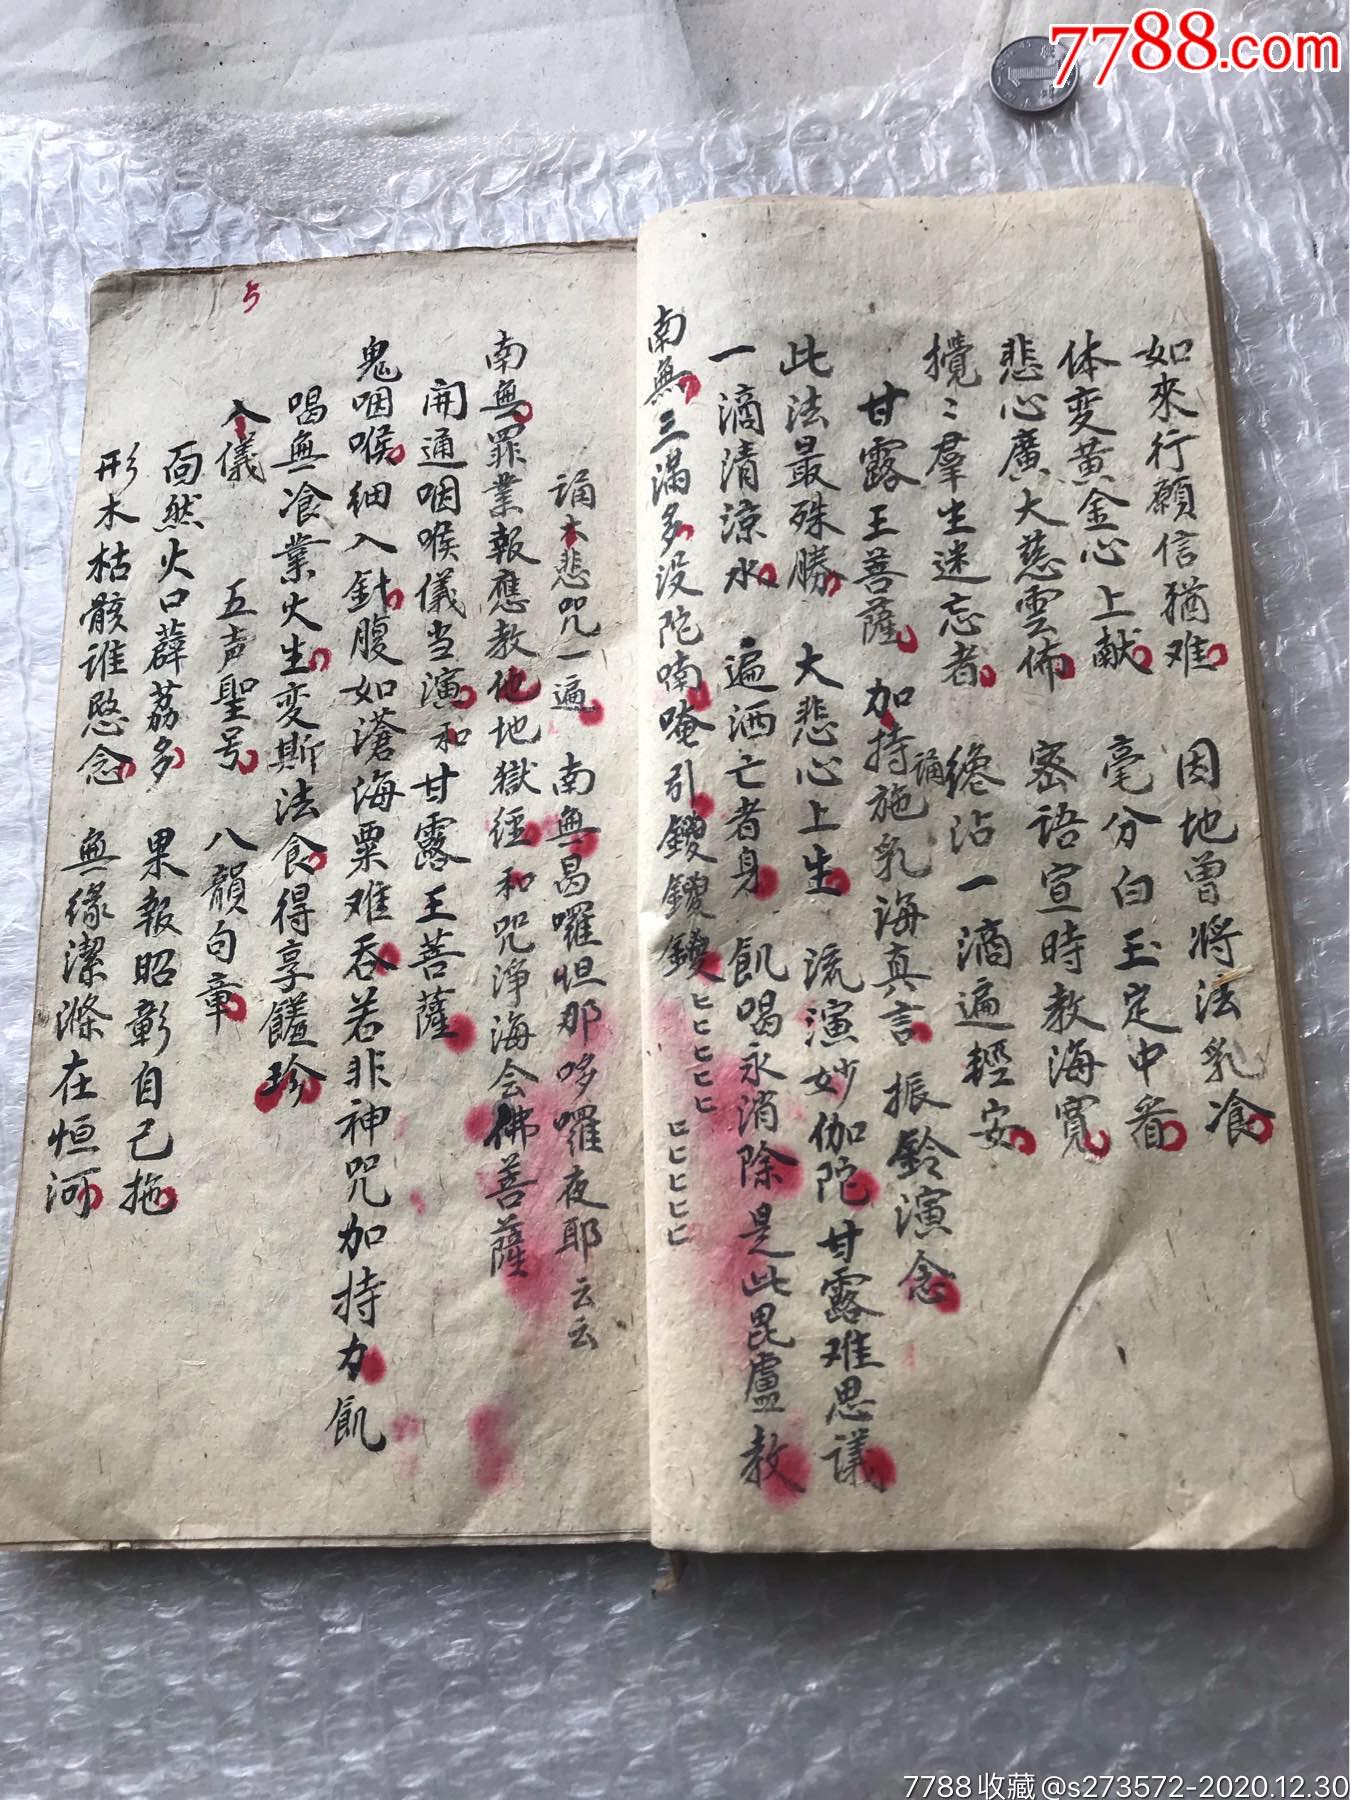 7788.com
如來行願信猶难 因地曾將法乳飡
体变黄金心上献 毫分白玉定中看
悲心廣大慈雲佈 密语宣時教海寬
攪〻羣生迷忘者 纔沾一滴遍輕安
甘露王菩薩 加持施乳海真言 振鈴演念
誦
此法最殊勝 大悲心上生 流演妙伽陀甘露难思議
一滴清涼水 遍洒亡者身 飢喝永消除是此毘盧教
南無三滿多没陀喃唵引鑁鑁鑁
5
誦大悲咒一遍 南無曷囉怛那哆囉夜耶云云
南無罪業報應教他地獄經和咒淨海会佛菩薩
開通咽喉儀当演和甘露王菩薩
鬼咽喉细入針腹如滄海粟难吞若非神咒加持力飢
喝無飡業火生变斯法食得享饈珍
儀 五声聖号 八韻句章
面然火口薜荔多 果報昭彰自己拖
形木枯骸谁愍念 無缘潔滌在恒河
7788收藏@s273572-2020.12.30